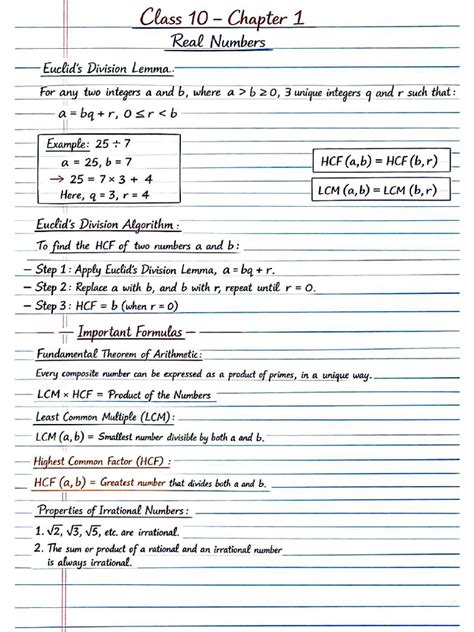 Class 10 – Chapter 1
Real Numbers
Euclid's Division Lemma.
For any two integers a and b, where a > b ≥ 0, 3 unique integers q and r such that:
a = bq + r, 0 ≤ r < b
Example: 25 ÷ 7
a = 25, b = 7
→ 25 = 7 × 3 + 4
Here, q = 3, r = 4
HCF (a, b) = HCF (b, r)
LCM (a, b) = LCM (b, r)
Euclid's Division Algorithm :
To find the HCF of two numbers a and b :
– Step 1 : Apply Euclid's Division Lemma, a = bq + r.
– Step 2 : Replace a with b, and b with r, repeat until r = 0.
– Step 3 : HCF = b (when r = 0)
– Important Formulas –
Fundamental Theorem of Arithmetic:
Every composite number can be expressed as a product of primes, in a unique way.
LCM × HCF = Product of the Numbers
Least Common Multiple (LCM) :
LCM (a, b) = Smallest number divisible by both a and b.
Highest Common Factor (HCF) :
HCF (a, b) = Greatest number that divides both a and b.
Properties of Irrational Numbers :
1. √2, √3, √5, etc. are irrational.
2. The sum or product of a rational and an irrational number
is always irrational.